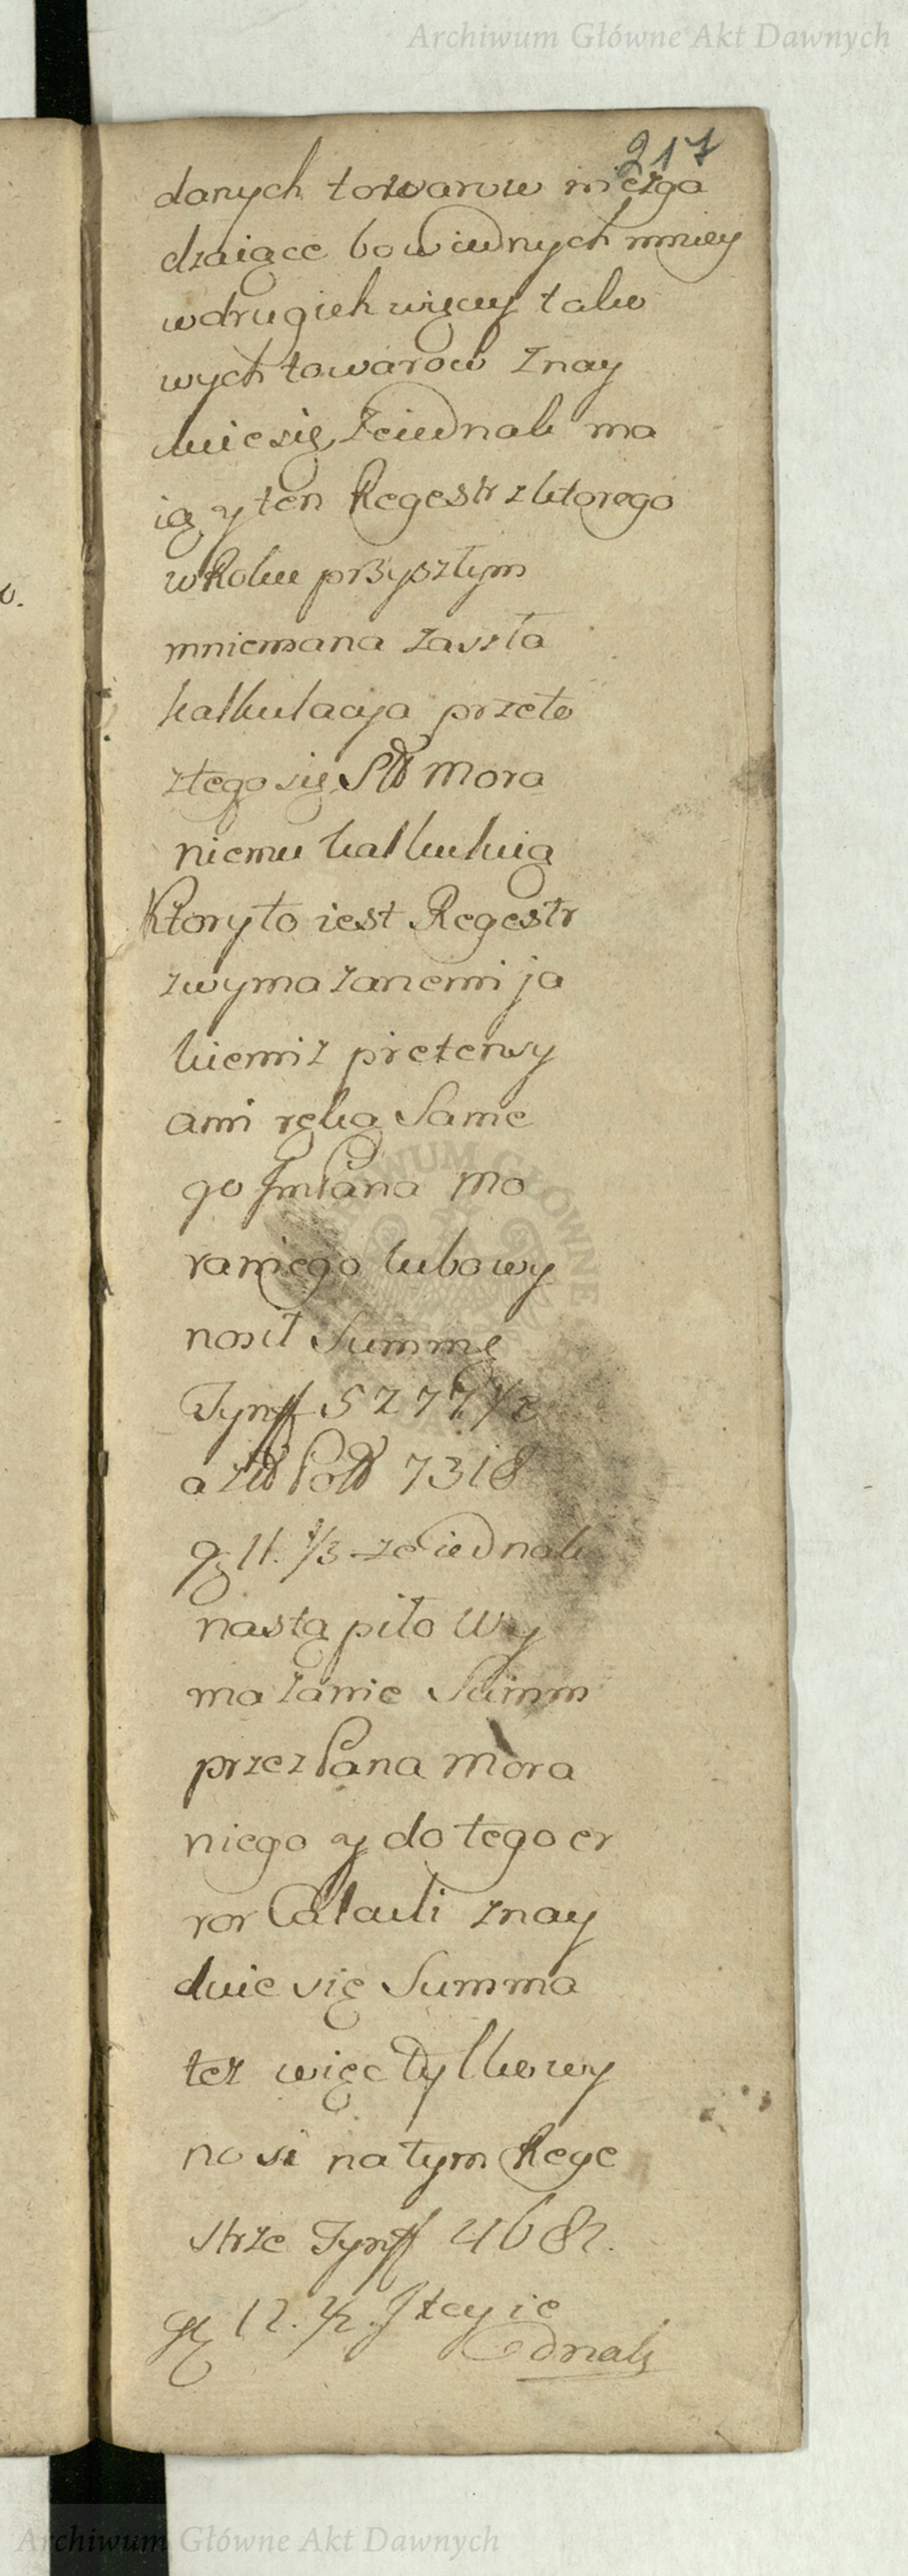 Archiwum Główne Akt Dawnych
217
danych towarow niezga
dzaiące bo w iednych mniey
w drugiek więcey tako
wych towarow znay
duie się, że iednak ma
ią y ten Regestr z ktorego
w Roku przyszłym
mniemana zaszła
kalkulacyja przeto
z tego się Pd Mora
niemu kalkuluią
Ktory to iest Regestr
z wymazanemi ja
kiemiz pretensy
ami ręką Same
go ImPana Mo
raniego lubo wy
nosił Summę
Tynff 5277 1/2
a złd Pold 7318
gz 11. 1/3 ze iednak
nastąpiło Wy
mazanie Summ
przez Pana Mora
niego y do tego er
ror Calculi znay
duie się Summa
tez więc tylko wy
nosi na tym Rege
strze Tynff 4682.
gz 12. 1/2. Jtey ie
dnak
Archiwum Główne Akt Dawnych